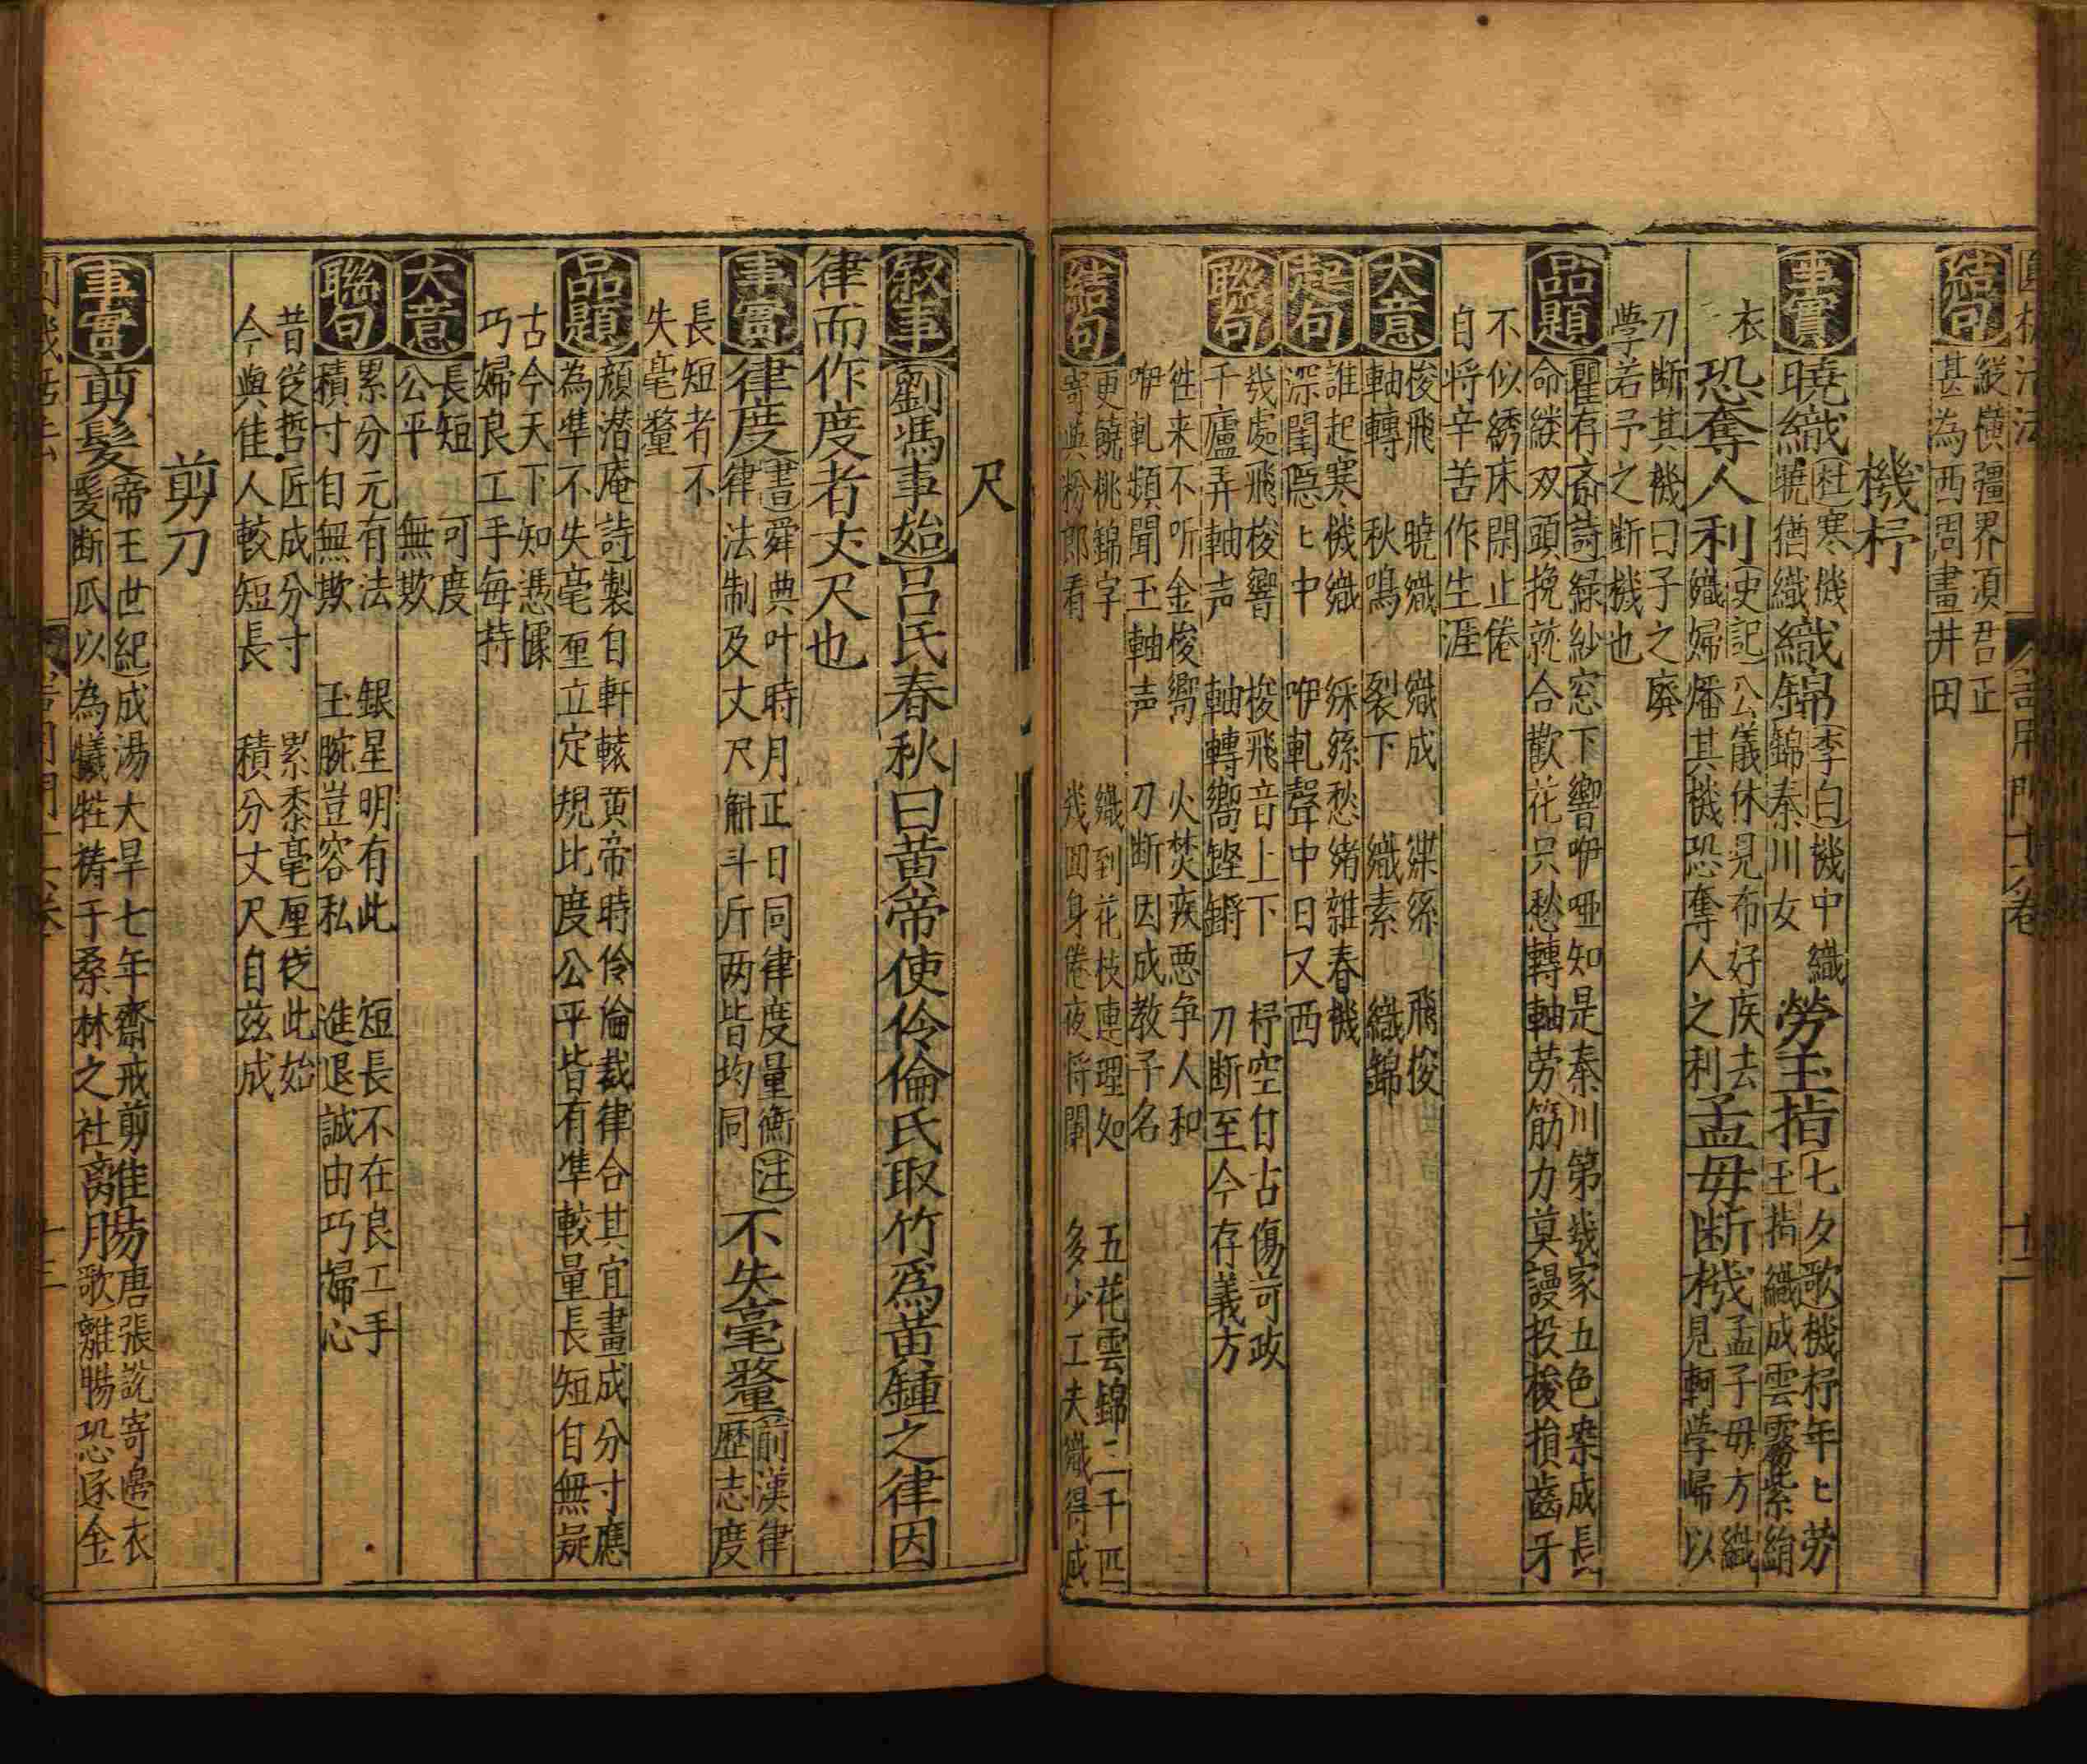 結句
縱横彊界湏君正
甚為西周畫井田
機杼
事實
曉織
杜寒機
曉猶織
織錦
李白機中織
錦秦川女
勞玉指
七夕歌機杼年匕勞
玉指織成雲霧紫綃
衣
恐奪人利
史記公儀休見布好疾去
織婦燔其機恐奪人之利
孟母断機
孟子母方織
見軻學歸以
刀断其機曰子之廢
學若予之断機也
品題
瞿存斎詩緑紗窓下響咿啞知是秦川第幾家五色染成長
命綫双頭挽就合歡花只愁轉軸劳筋力莫謾投梭損齒牙
不似綉床閑止倦
自将辛苦作生涯
大意
梭飛 曉織 織成 緤綵 飛梭
軸轉 秋鳴 裂下 織素 織錦
起句
誰起寒機織 綵綵愁緒雜春機
深閨隠匕中 咿軋聲中日又西
聯句
幾處飛梭響 梭飛音上下 杼空自古傷苛政
千廬弄軸声 軸轉嚮鏗鏘 刀断至今存義方
徃来不听金梭嚮 火焚疾惡争人和
咿軋頻聞玉軸声 刀断因成教子名
結句
更饒桃錦字 織到花枝連理処 五花雲錦二千匹
寄與粉郎看 幾回身倦夜将闌 多少工夫織得成
尺
叙事
劉馮事始
呂氏春秋曰黄帝使伶倫氏取竹爲黄鍾之律因
律而作度者丈尺也
事實
律度
書舜典叶時月正日同律度量衡注
律法制及丈尺斛斗斤两皆均同
不失毫釐
前漢律
歴志度
長短者不
失毫釐
品題
顔潜庵詩製自軒轅黄帝時伶倫裁律合其宜畫成分寸應
為準不失毫厘立定規比度公平皆有準較量長短自無疑
古今天下知憑㨿
巧婦良工手每持
大意
長短 可度
公平 無欺
聯句
累分元有法 銀星明有此 短長不在良工手
積寸自無欺 玉腕豈容私 進退誠由巧婦心
昔從哲匠成分寸 累黍毫厘從此始
今與佳人較短長 積分丈尺自兹成
剪刀
事實
剪髮
帝王世紀成湯大旱七年齋戒剪
髮断爪以為犧牲禱于桑林之社
離腸
唐張說寄邊衣
歌離腸恐逐金